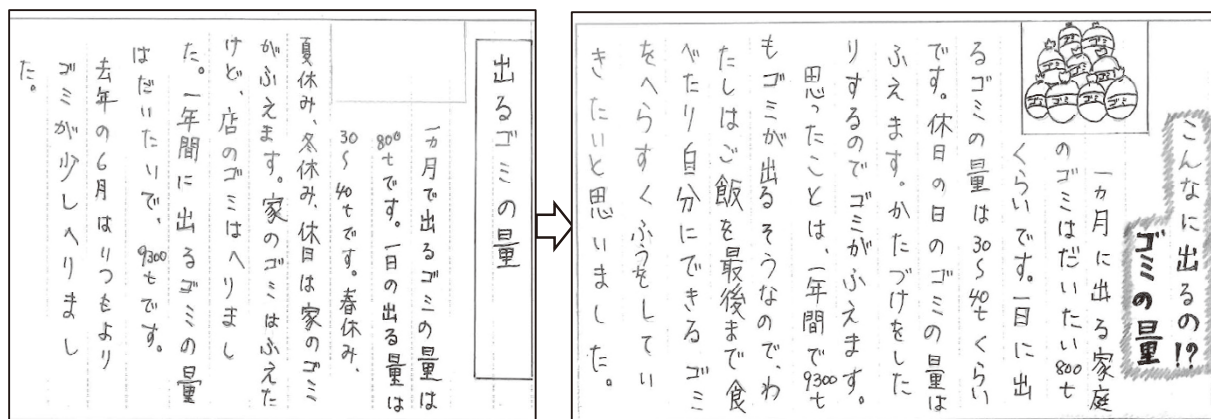 出るゴミの量
一カ月で出るゴミの量は
800tです。一日の出る量は
30〜40tです。春休み、
夏休み、冬休み、休日は家のゴミ
がふえます。家のゴミはふえた
けど、店のゴミはへりまし
た。一年間に出るゴミの量
はだいたいで、9300tです。
去年の6月はいつもより
ゴミが少しへりまし
た。
こんなに出るの!?
ゴミの量
一カ月に出る家庭
のゴミはだいたい800t
くらいです。一日に出
るゴミの量は30〜40tくらい
です。休日の日のゴミの量は
ふえます。かたづけをした
りするのでゴミがふえます。
思ったことは、一年間で9300t
もゴミが出るそうなので、わ
たしはご飯を最後まで食
べたり自分にできるゴミ
をへらすくふうをしてい
きたいと思いました。